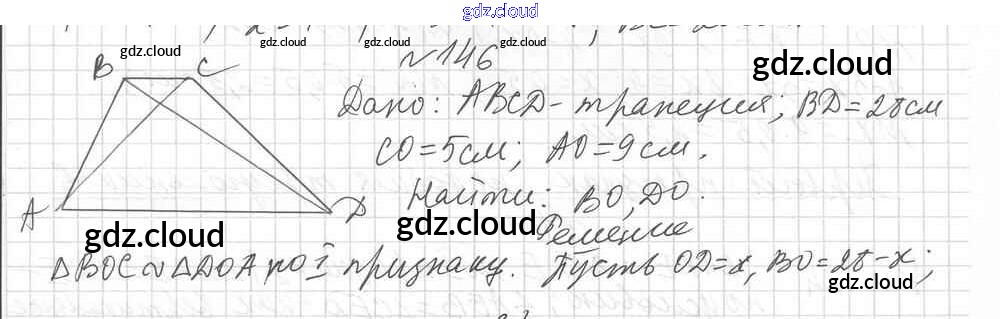 gdz.cloud
gdz.cloud gdz.cloud gdz.cloud
№146
B C
gdz.cloud
Дано: ABCD - трапеция; BD=28см
gdz.cloud
CO=5см; AO=9см.
gdz.cloud
Найти: BO, DO.
A D
gdz.cloud gdz.cloud
Решение
△BOC ~ △DOA по I признаку. Пусть OD=x, BO=28-x;
gdz.cloud